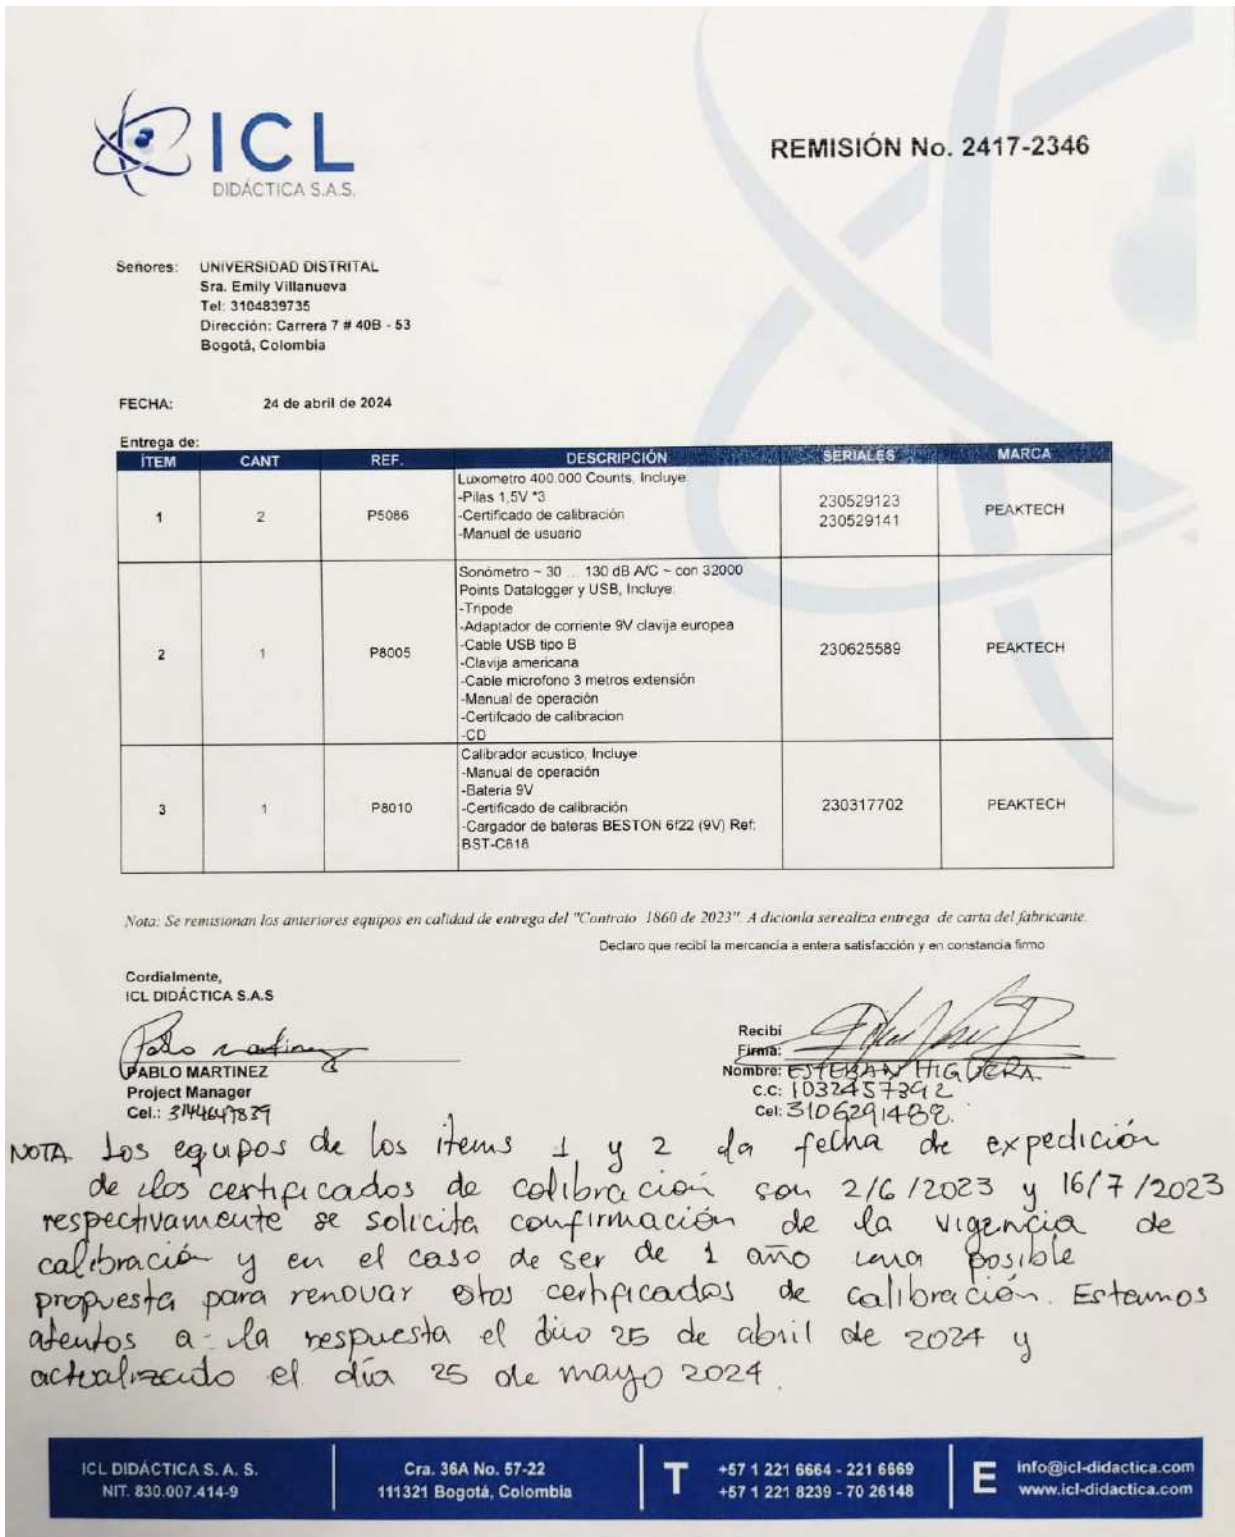 ICL
DIDÁCTICA S.A.S.
REMISIÓN No. 2417-2346
Señores: UNIVERSIDAD DISTRITAL
Sra. Emily Villanueva
Tel: 3104839735
Dirección: Carrera 7 # 40B - 53
Bogotá, Colombia
FECHA: 24 de abril de 2024
Entrega de:
ÍTEM CANT REF. DESCRIPCIÓN SERIALES MARCA
1 2 P5086 Luxometro 400.000 Counts, Incluye:
-Pilas 1,5V *3
-Certificado de calibración
-Manual de usuario
230529123
230529141
PEAKTECH
2 1 P8005 Sonómetro ~ 30 ... 130 dB A/C ~ con 32000
Points Datalogger y USB, Incluye:
-Tripode
-Adaptador de corriente 9V clavija europea
-Cable USB tipo B
-Clavija americana
-Cable microfono 3 metros extensión
-Manual de operación
-Certifcado de calibracion
-CD
230625589
PEAKTECH
3 1 P8010 Calibrador acustico, Incluye
-Manual de operación
-Bateria 9V
-Certificado de calibración
-Cargador de bateras BESTON 6f22 (9V) Ref:
BST-C818
230317702
PEAKTECH
Nota: Se remisionan los anteriores equipos en calidad de entrega del "Contrato 1860 de 2023". A dicionla serealiza entrega de carta del fabricante.
Declaro que recibí la mercancia a entera satisfacción y en constancia firmo
Cordialmente,
ICL DIDÁCTICA S.A.S
Pablo Martinez
PABLO MARTINEZ
Project Manager
Cel.: 3144647839
Recibí
Firma:
Nombre: ESTEBAN HIGUERA
C.C: 1032457392
Cel: 3106291488.
NOTA Los equipos de los items 1 y 2 la fecha de expedición
de los certificados de calibración son 2/6/2023 y 16/7/2023
respectivamente se solicita confirmación de la vigencia de
calibración y en el caso de ser de 1 año una posible
propuesta para renovar estos certificados de calibración. Estamos
atentos a la respuesta el dia 25 de abril de 2024 y
actualizado el día 25 de mayo 2024.
ICL DIDÁCTICA S. A. S.
NIT. 830.007.414-9
Cra. 36A No. 57-22
111321 Bogotá, Colombia
T +57 1 221 6664 - 221 6669
+57 1 221 8239 - 70 26148
E info@icl-didactica.com
www.icl-didactica.com